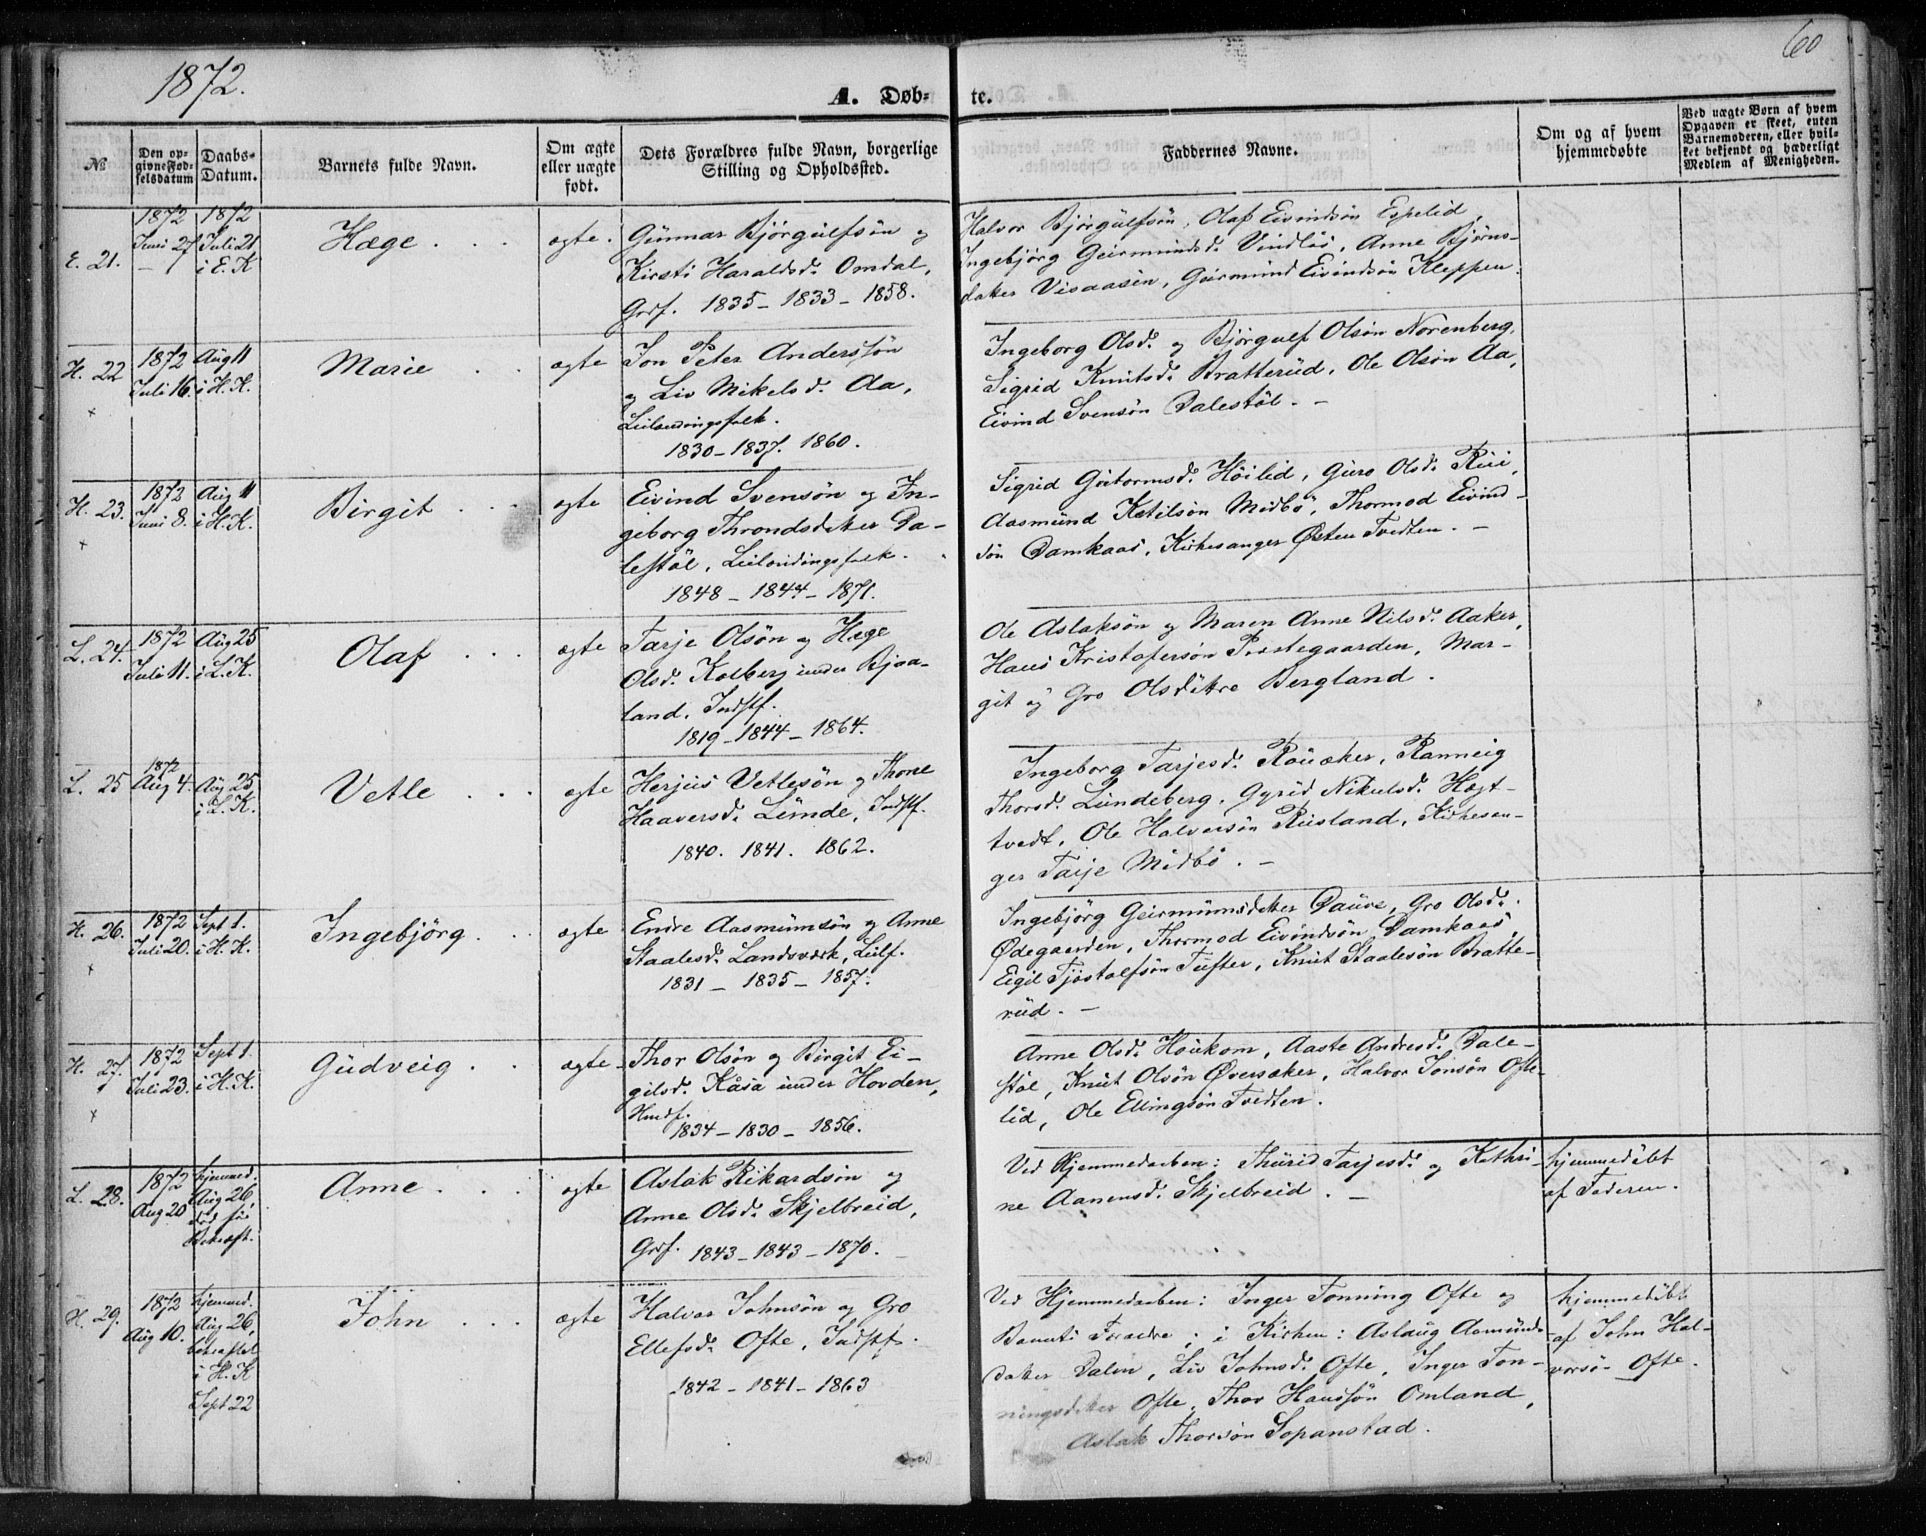 1872.
60
A. Døb-
te.
№
Den op-
givne Fød-
selsdatum
Daabs-
Datum.
Barnets fulde Navn.
Om ægte
eller uægte
født.
Dets Forældres fulde Navn, borgerlige
Stilling og Opholdssted.
Faddernes Navne.
Om og af hvem
hjemmedøbte
Ved uægte Børn af hvem
Opgaven er skeet, enten
Barnemoderen, eller hvil-
ket bekjendt og hæderligt
Medlem af Menigheden.
E. 21.
1872
Juni 27
1872
Juli 21
i E. K
Hæge
ægte.
Gunnar Bjørgulfsøn og
Kirsti Haraldsd. Omdal,
Grf. 1835 - 1833 - 1858.
Halvor Bjørgulfsøn, Olaf Eivindsøn Espelid,
Ingebjørg Geirmundsd. Vindlös, Anne Bjørns-
datter Visaasen, Geirmund Eivindsøn Kleppen.
H. 22
+
1872
Juli 16.
Aug 11
i H. K.
Marie
ægte
Jon Peter Anderssøn
og Liv Mikelsd. Aa,
Leilændingsfolk.
1830 - 1837. 1860.
Ingeborg Olsd. og Bjørgulf Olsøn Norenberg,
Sigrid Knutsd. Bratterud, Ole Olsøn Aa,
Eivind Svensøn Dalestøl. -
H. 23.
+
1872
Juni 8.
Aug 11
i H. K.
Birgit
ægte
Eivind Svensøn og In-
geborg Throndsdtter Da-
lestøl, Leilændingsfolk.
1848 - 1844 - 1871.
Sigrid Gutormsd. Höilid, Guro Olsd. Rui,
Aasmund Ketilsøn Midbö, Thormod Eivind-
søn Damkaas, Kirkesanger Østen Tvedten. -
L. 24.
1872
Juli 11.
Aug 25
i L. K.
Olaf
ægte
Tarje Olsøn og Hæge
Olsd. Kolberg under Bjaa-
land, Indstf.
1819 - 1844 - 1864.
Ole Aslaksøn og Maren Anne Nilsd. Aaker,
Hans Kristofersøn Prestegaarden, Mar-
git og Gro Olsdøtre Bergland.
L. 25
1872
Aug 4.
Aug 25
i L. K.
Vetle
ægte
Herjus Vetlesøn og Thone
Haaversd. Lunde, Indstf.
1840. 1841. 1862.
Ingeborg Tarjesd. Rouaker, Ranneig
Thorsd. Lundeberg, Gyrid Nikulsd. Hægt-
tvedt, Ole Halvorsøn Rusland, Kirkesan-
ger Tarje Midbö. -
H. 26.
+
1872
Juli 20.
Sept 1.
i H. K.
Ingebjörg
ægte
Endre Aasmunsøn og Anne
Staalesd. Landsværk, Leilf.
1831 - 1835 - 1857.
Ingebjörg Geirmunsdtter Daure, Gro Olsd.
Ødegaarden, Thormod Eivindsøn Damkaas,
Eigil Tjöstolfsøn Tufter, Knut Staalesøn Bratte-
rud. -
H. 27.
+
1872
Juli 23.
Sept 1.
i H. K.
Gudveig
ægte
Thor Olsøn og Birgit Ei-
gilsd. Kåsa under Hovden,
Husf.
1834 - 1830 - 1856.
Anne Olsd. Houkom, Aaste Andresd. Dale-
støl, Knut Olsøn Øversaker, Halvor Jonsøn Ofte-
lid, Ole Ellingsøn Tvedten.
L. 28.
1872
Aug 20
hjemmed.
Aug 26,
død før
Bekræft.
Anne
ægte
Aslak Rikardsøn og
Anne Olsd. Skjelbreid,
Grf. 1843 - 1843 - 1870.
Ved Hjemmedaaben: Thurid Tarjesd. og Kathri-
ne Aanensd. Skjelbreid. -
hjemmedöbt
af Faderen.
H. 29.
1872
Aug 10.
hjemmed.
Aug 26,
bekræftet
i H. K
Sept 22
John
ægte
Halvor Johnsøn og Gro
Ellefsd. Ofte, Indstf.
1842 - 1841 - 1863
Ved Hjemmedaaben: Inger Tonning Ofte og
Barnets Forældre; i Kirken: Aslaug Asmunds-
datter Dalen, Liv Johnsd. Ofte, Inger Ton-
ningsdtter Ofte, Thor Hanssøn Omland,
Aslak Thorsøn Sopanstad.
hjemmedöbt
af John Hal-
vorsø- Ofte.